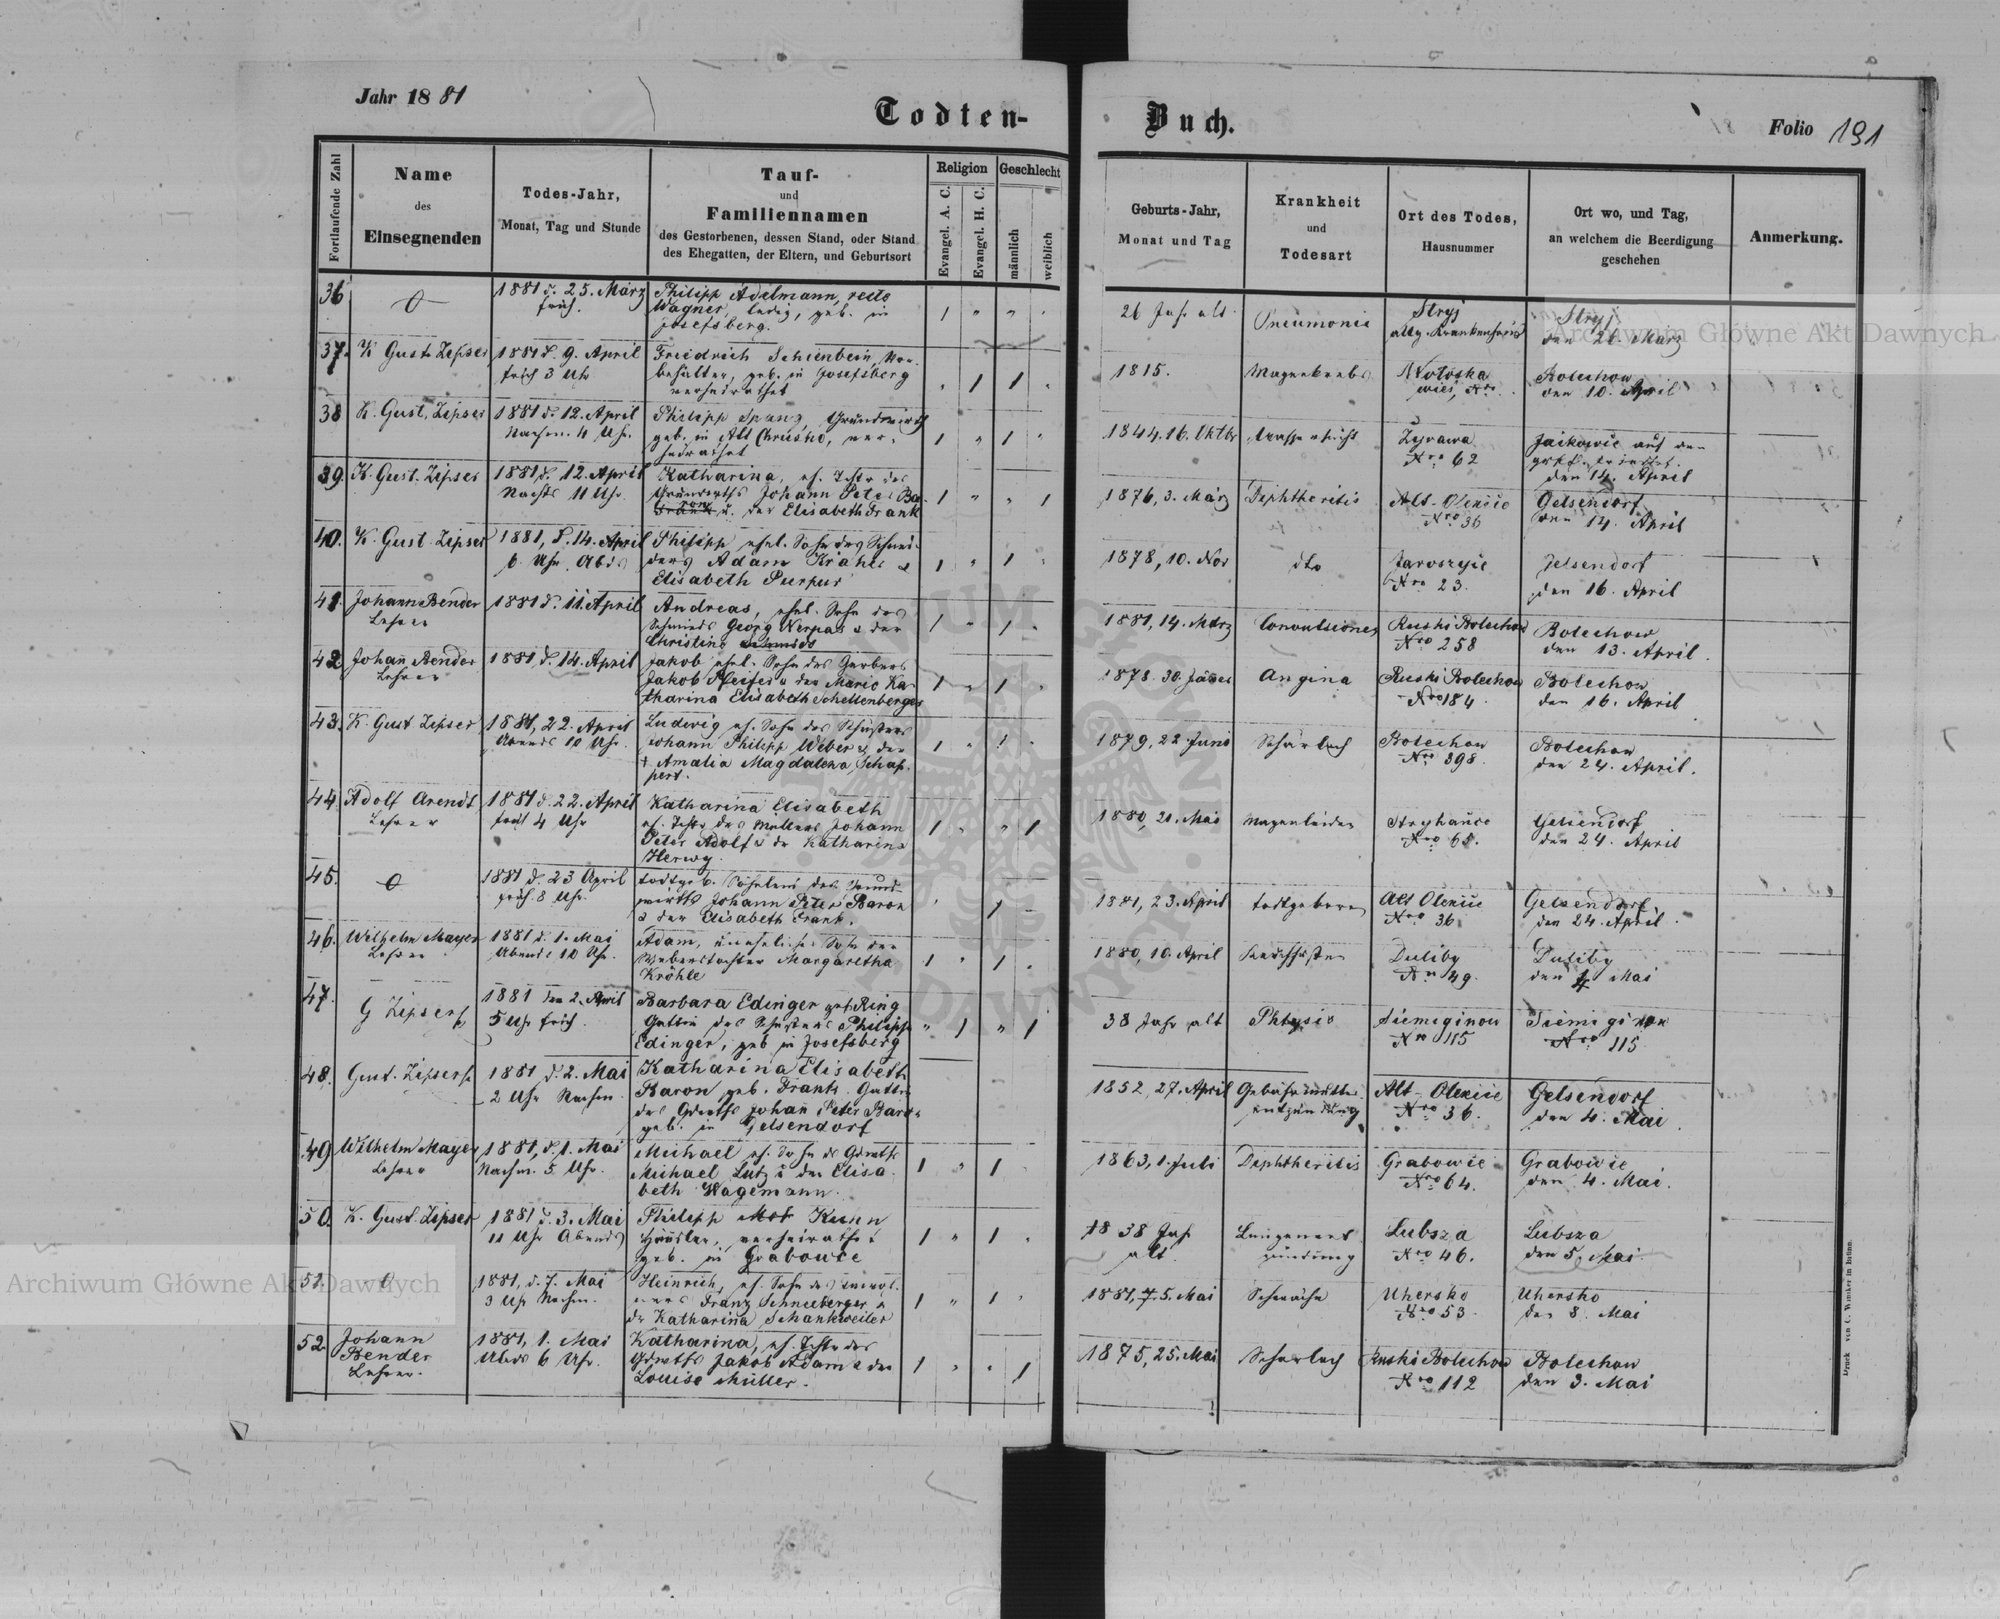 Jahr 1881
Todten-
Buch.
Folio 191
Fortlaufende Zahl
Name
des
Einsegnenden
Todes-Jahr,
Monat, Tag und Stunde
Tauf-
und
Familiennamen
des Gestorbenen, dessen Stand, oder Stand
des Ehegatten, der Eltern, und Geburtsort
Religion
Evangel. A. C.
Evangel. H. C.
Geschlecht
männlich
weiblich
Geburts-Jahr,
Monat und Tag
Krankheit
und
Todesart
Ort des Todes,
Hausnummer
Ort wo, und Tag,
an welchem die Beerdigung
geschehen
Anmerkung.
36
1881 d. 25. März
früh.
Philipp Adelmann, recte
Wagner, ledig, geb. in
Josefsberg.
26 Jahr alt
Pneumonie
Stryj
allg. Krankenhaus
Stryj
den 26. März
37.
K Gust. Zipser
1881 d. 9. April
früh 3 Uhr
Friedrich Schienbein,
geb. in Josefsberg
verheirathet
1815.
Magenkrebs
Wołoska
wieś, Nro
Bolechow
den 10. April
38
K. Gust. Zipser
1881 d. 12. April
Nachm. 4 Uhr.
Philipp Spanz, Grundwirth
geb. in Alt Chrusno, ver-
heirathet
1844. 16. Oktbr
Wassersucht
Zyrawa
Nro 62
Jaikowie auf den
den 14. April
39.
K. Gust. Zipser
1881 d. 12. April
Nachts 11 Uhr.
Katharina, eh. Tchtr des
Grundwirths Johann Peter Ba-
ron u. der Elisabeth Frank
1876, 3. März
Diphtheritis
Alt-Oleksie
Nro 36
Gelsendorf
den 14. April
40.
K. Gust. Zipser
1881, d. 14. April
6 Uhr Abds
Philipp ehel. Sohn des Schnei-
ders Adam Krähe u
Elisabeth Purpur
1878, 10. Nov
dto
Jaroszyce
Nro 23.
Gelsendorf
den 16. April
41.
Johann Bender
Lehrer
1881 d. 11. April
Andreas, ehel. Sohn des
Schmieds Georg Nerpas u der
Christine Schmidt
1881, 14. März
Convulsionen
Ruski Bolechow
Nro 258
Bolechow
den 13. April.
42
Johann Bender
Lehrer
1881 d. 14. April
Jakob ehel. Sohn des Gerbers
Jakob Pfeifer u der Marie Ka-
tharina Elisabeth Schellenberger
1878. 30. Jäner
Angina
Ruski Bolechow
Nro 184
Bolechow
den 16. April
43.
K. Gust Zipser
1881, 22. April
Abends 10 Uhr.
Ludwig eh. Sohn des Schusters
Johann Philipp Weber u der
+ Amalia Magdalena Schap-
pert.
1879, 22 Juni
Scharlach
Bolechow
Nro 398.
Bolechow
den 24. April.
44.
Adolf Arendt
Lehrer
1881 d. 22. April
früh 4 Uhr
Katharina Elisabeth
eh. Tchtr des Müllers Johann
Peter Adolf u dr Katharina
Herwy.
1880, 21. Mai
Magenleiden
Stryhance
Nro 65.
Gelsendorf
den 24. April
45.
1881 d. 23 April
früh 8 Uhr.
todtgeb. Söhnlein des Grund-
wirths Johann Peter Baron
u der Elisabeth Frank.
1881, 23. April
todtgeboren
Alt Oleksie
Nro 36
Gelsendorf,
den 24. April.
46.
Wilhelm Mayer
Lehrer
1881 d. 1. Mai
Abends 10 Uhr.
Adam, unehelicher Sohn der
Weberstochter Margaretha
Kröhle
1880, 10. April
Keuchhusten
Duliby
Nro 49.
Duliby
den 4 Mai
47.
G Zipser
1881 den 2. April
5 Uhr früh.
Barbara Edinger geb. Ring
Gattin des Schusters Philipp
Edinger, geb in Josefsberg
38 Jahr alt
Phtysis
Siemiginow
Nro 115
Siemiginow
Nro 115
48.
Gust. Zipser
1881 d. 2. Mai
2 Uhr Nachm.
Katharina Elisabeth
Baron geb. Frank. Gattin
des Gdwths Johan Peter Baron
geb. in Gelsendorf
1852, 27. April
Gebärmutter-
entzündung
Alt-Oleksie
Nro 36.
Gelsendorf
den 4. Mai.
49
Wilhelm Mayer
Lehrer
1881, d. 1. Mai
Nachm. 5 Uhr.
Michael eh. Sohn ds Gdwths
Michael Lutz u der Elisa-
beth Wagemann.
1863, 1. Juli
Diphtheritis
Grabowie
Nro 64.
Grabowie
den 4. Mai.
50.
K. Gust. Zipser
1881 d. 3. Mai
11 Uhr Abends
Philipp Kuhn
Häusler, verheirathet
geb. in Grabowce
38 Jahr
alt.
Lungenent-
zündung
Lubsza
Nro 46.
Lubsza
den 5. Mai.
51.
1881, d. 7. Mai
3 Uhr Nachm.
Heinrich, eh. Sohn des
Franz Schneeberger u
dr Katharina Schankweiler
1881, 5. Mai
Schwäche
Uhersko
Nro 53.
Uhersko
den 8. Mai
52
Johann
Bender
Lehrer.
1881, 1. Mai
Abds 6 Uhr.
Katharina, eh. Tchtr des
Gdwths Jakob Adam u der
Louise Müller.
1875, 25. Mai
Scharlach
Ruski Bolechow
Nro 112
Bolechow
den 3. Mai
Druck von C. Winiker in Brünn.
Archiwum Główne Akt Dawnych
Archiwum Główne Akt Dawnych